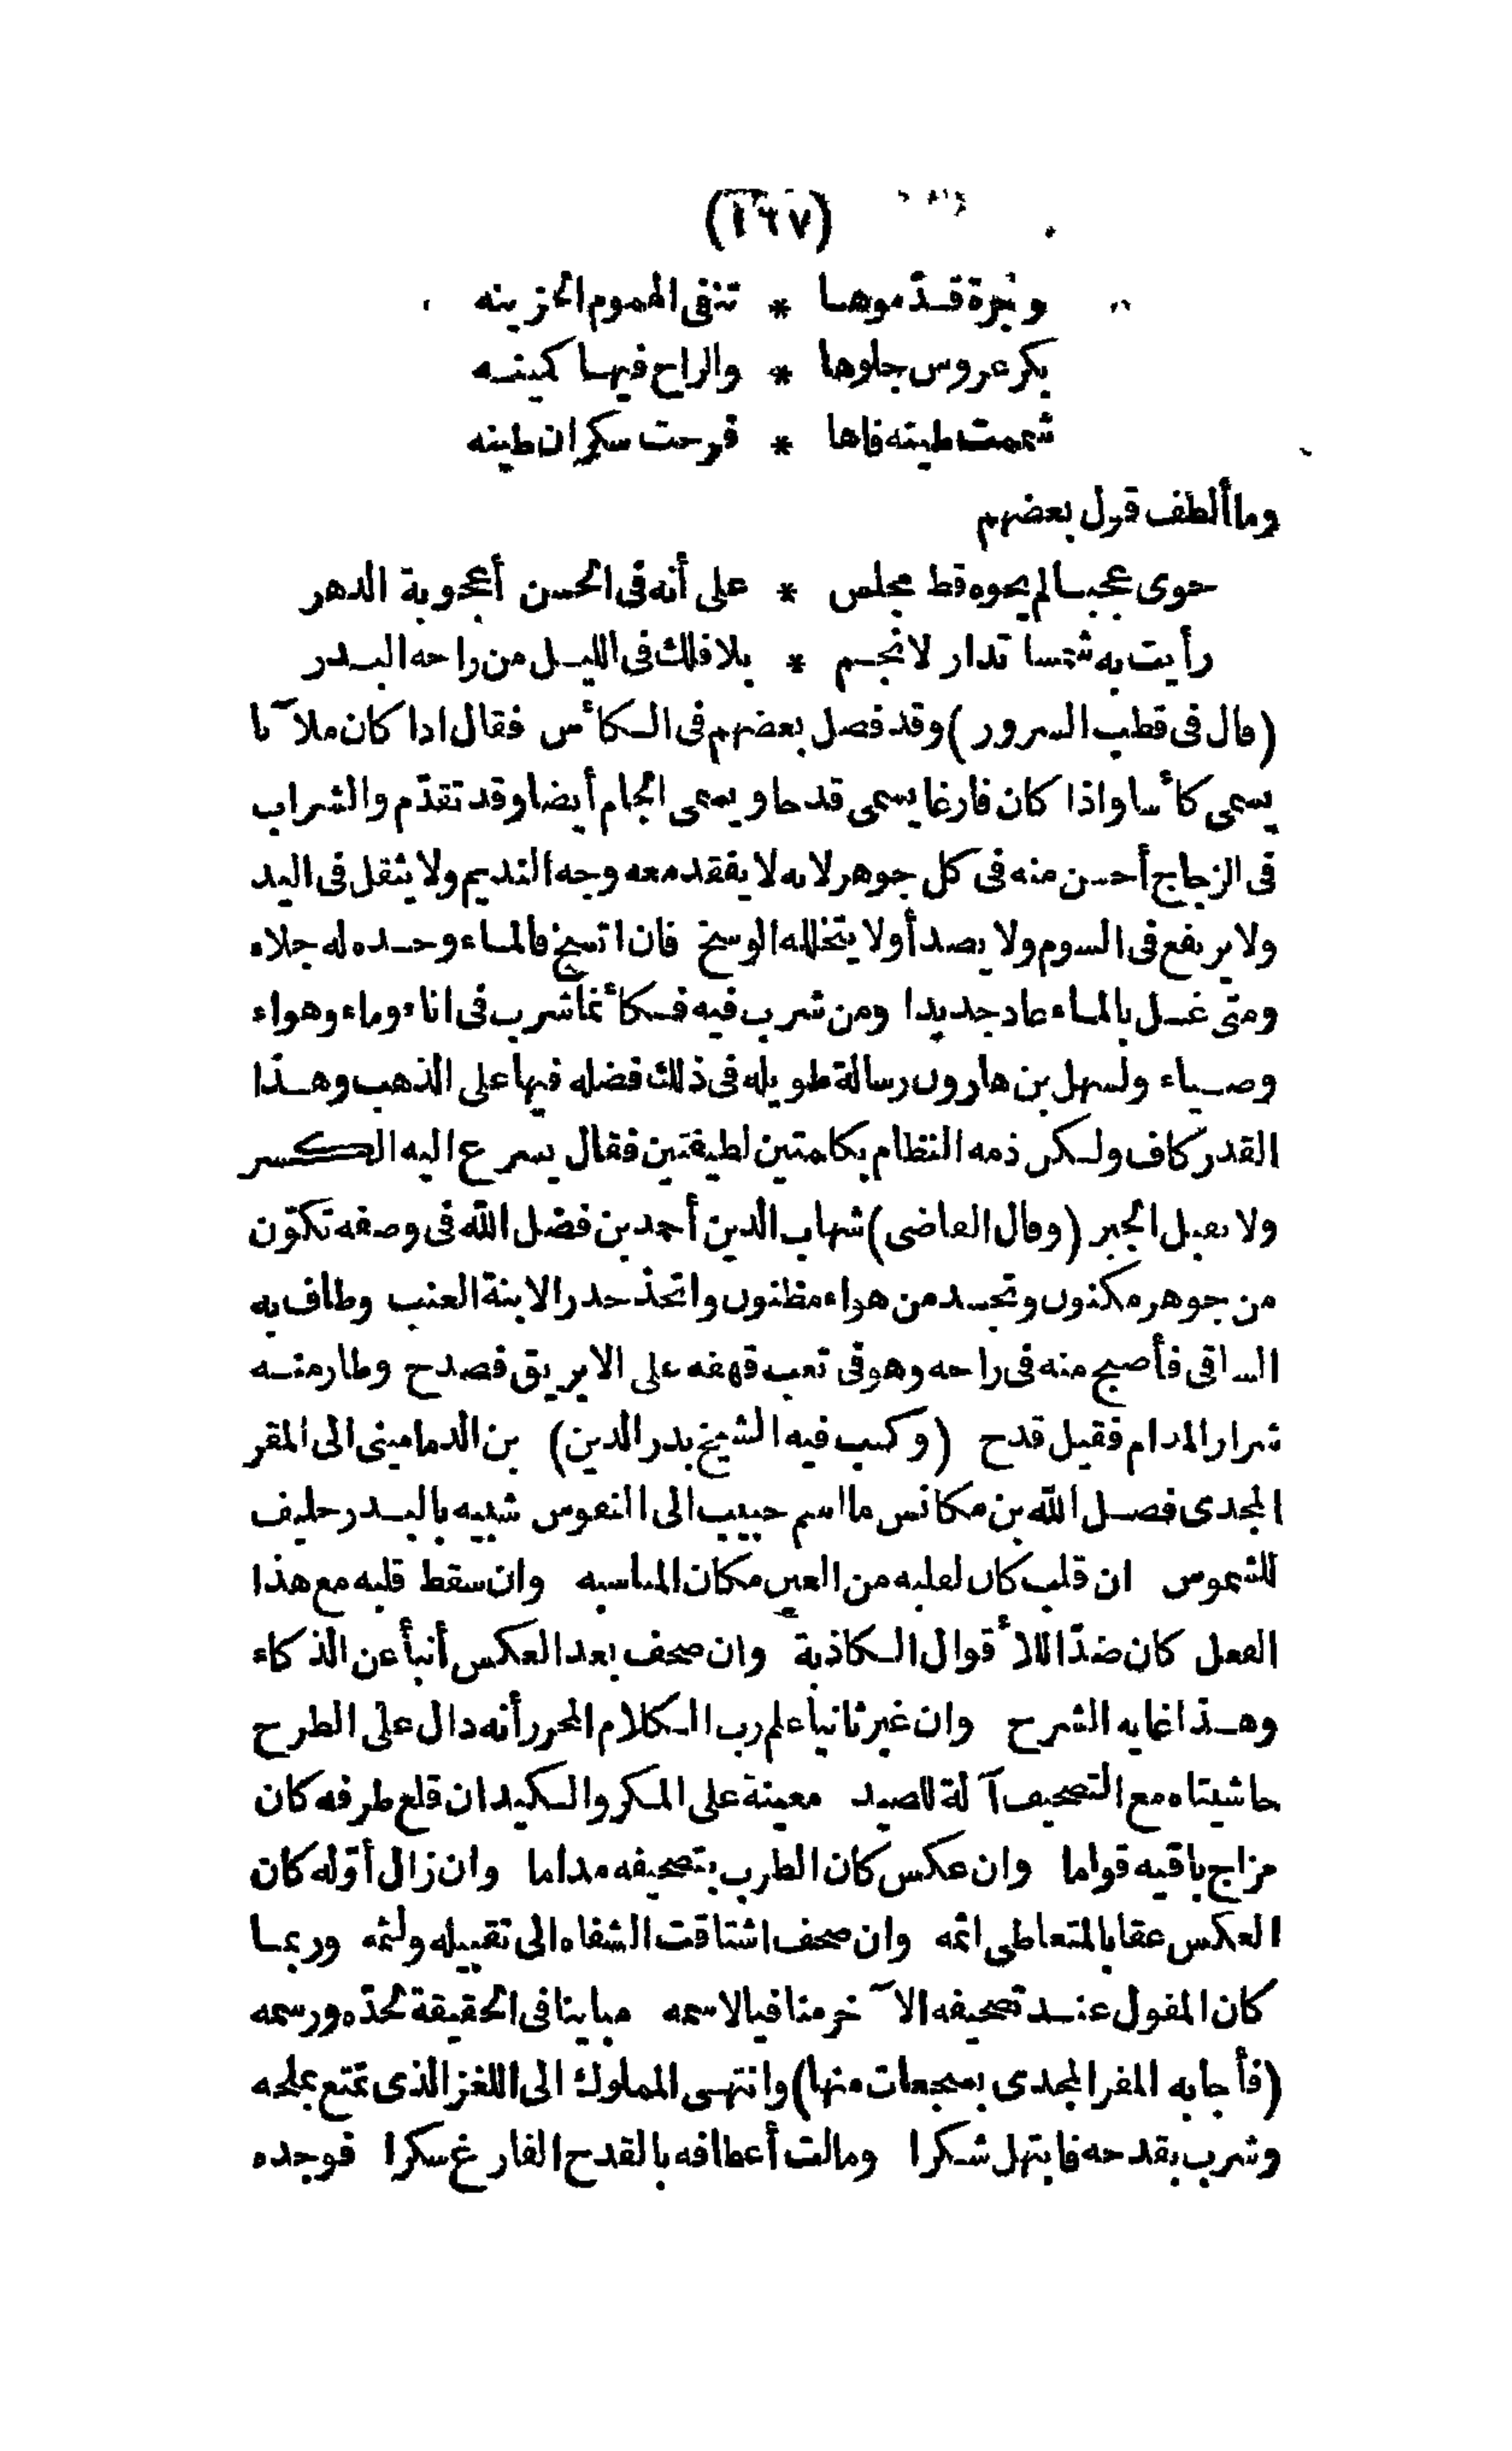 (١٦٧)
وخمرة قدّموها * تنفى الهموم الحزينه
بكر عروس جلوها * والراح فيها كمينه
شممت طينه فاها * فرحت سكران طينه
وما ألطف قول بعضهم
حوى عجبا لم يحوه قط مجلس * على أنه فى الحسن أعجوبة الدهر
رأيت به شمسا تدار لانجم * بلا فلك فى الليل من راحه البدر
(قال فى قطب السرور) وقد فصل بعضهم فى الكأس فقال اذا كان ملآ نا
يسمى كأسا واذا كان فارغا يسمى قدحا ويسمى الجام أيضا وقد تقدّم والشراب
فى الزجاج أحسن منه فى كل جوهر لانه لا يفقد معه وجه النديم ولا يثقل فى اليد
ولا يرتفع فى السوم ولا يصدأ ولا يتخلله الوسخ فان اتسخ فالماء وحده له جلاء
ومتى غسل بالماء عاد جديدا ومن شرب فيه فكأنما شرب فى اناء وماء وهواء
وضياء ولسهل بن هارون رسالة طويله فى ذلك فضله فيها على الذهب وهذا
القدر كاف ولكن ذمه النظام بكلمتين لطيفتين فقال يسرع اليه الكسر
ولا يقبل الجبر (وقال القاضى) شهاب الدين أحمد بن فضل الله فى وصفه تكوّن
من جوهر مكنون وتجسد من هواء مظنون واتخذ خدرا لابنة العنب وطاف به
الساقى فأصبح منه فى راحه وهو فى تعب قهقه على الابريق فصدح وطار منه
شرار المدام فقيل قدح (وكتب فيه الشيخ بدر الدين) بن الدمامينى الى المقر
المجدى فضل الله بن مكانس ما اسم حبيب الى النفوس شبيه بالبدر حليف
للشموس ان قلب كان لقلبه من العين مكان المناسبه وان سقط قلبه مع هذا
الفعل كان ضدّا للأقوال الكاذبة وان صحف بعد العكس أنبأ عن الذكاء
وهذا غايه الشرح وان غير ثانيا علم رب الكلام المحرر أنه دال على الطرح
حاشيتاه مع التصحيف آلة للصيد معينة على المكر والكيد ان قلع طرفه كان
مزاج باقيه قواما وان عكس كان الطرب بتصحيفه مداما وان زال أوّله كان
العكس عقابا لمتعاطى اثمه وان صحف اشتاقت الشفاه الى تقبيله ولثمه وربما
كان المقول عند تصحيفه الآخر منافيا لاسمه مباينا فى الحقيقة لحدّه ورسمه
(فأجابه المقر المجدى بسجعات منها) وانتهى المملوك الى اللغز الذى تمتع بملحه
وشرب بقدحه فابتهل شكرا ومالت أعطافه بالقدح الفارغ سكرا فوجده